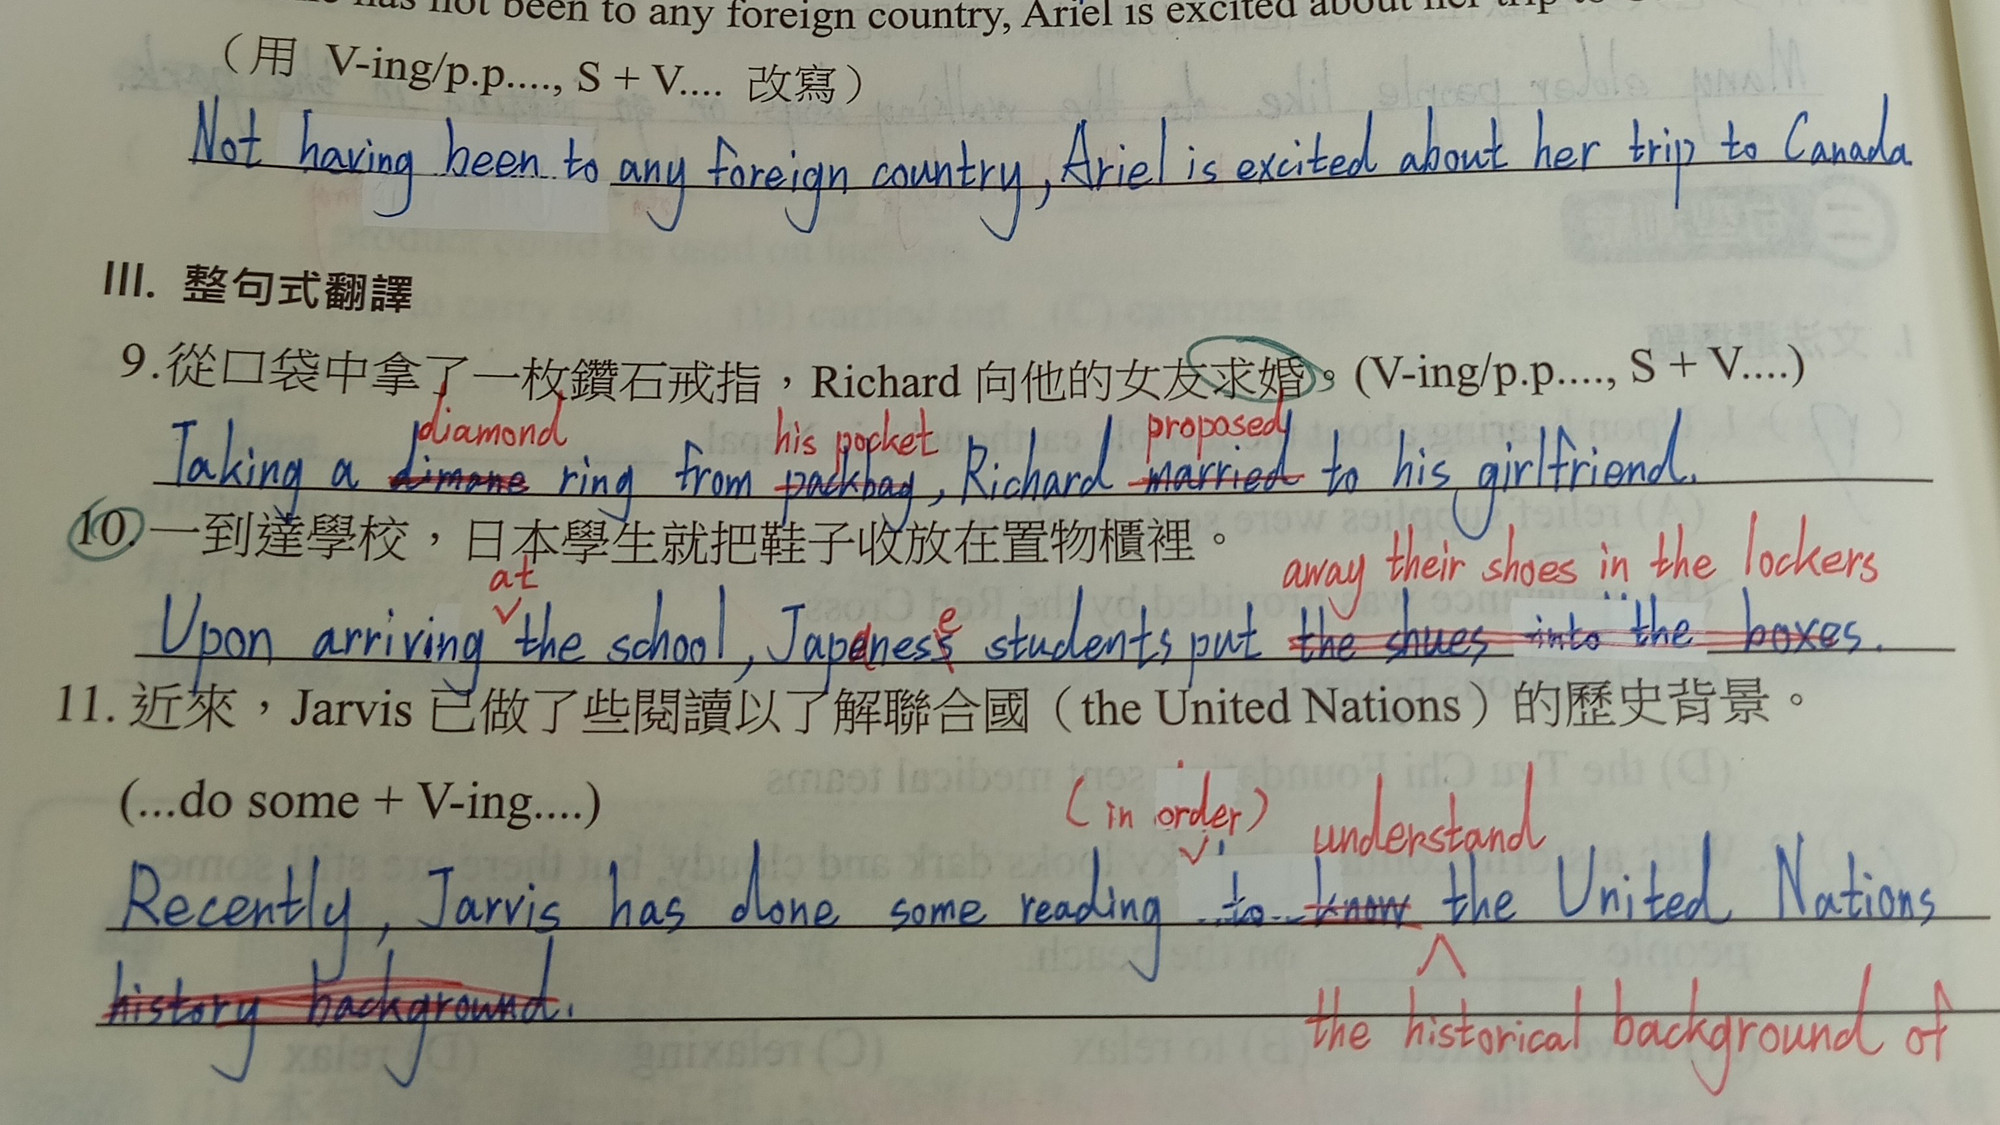 has not been to any foreign country, Ariel is excited about her trip to
（用 V-ing/p.p...., S + V.... 改寫）
Not having been to any foreign country, Ariel is excited about her trip to Canada
III. 整句式翻譯
9.從口袋中拿了一枚鑽石戒指，Richard 向他的女友求婚。(V-ing/p.p...., S + V....)
diamond his pocket proposed
Taking a dimone ring from packbag, Richard married to his girlfriend.
10.一到達學校，日本學生就把鞋子收放在置物櫃裡。
at away their shoes in the lockers
Upon arriving the school, Japanese students put the shues into the boxes.
11.近來，Jarvis 已做了些閱讀以了解聯合國（the United Nations）的歷史背景。
(...do some + V-ing....)
(in order) understand
Recently, Jarvis has done some reading to know the United Nations
history background.
the historical background of